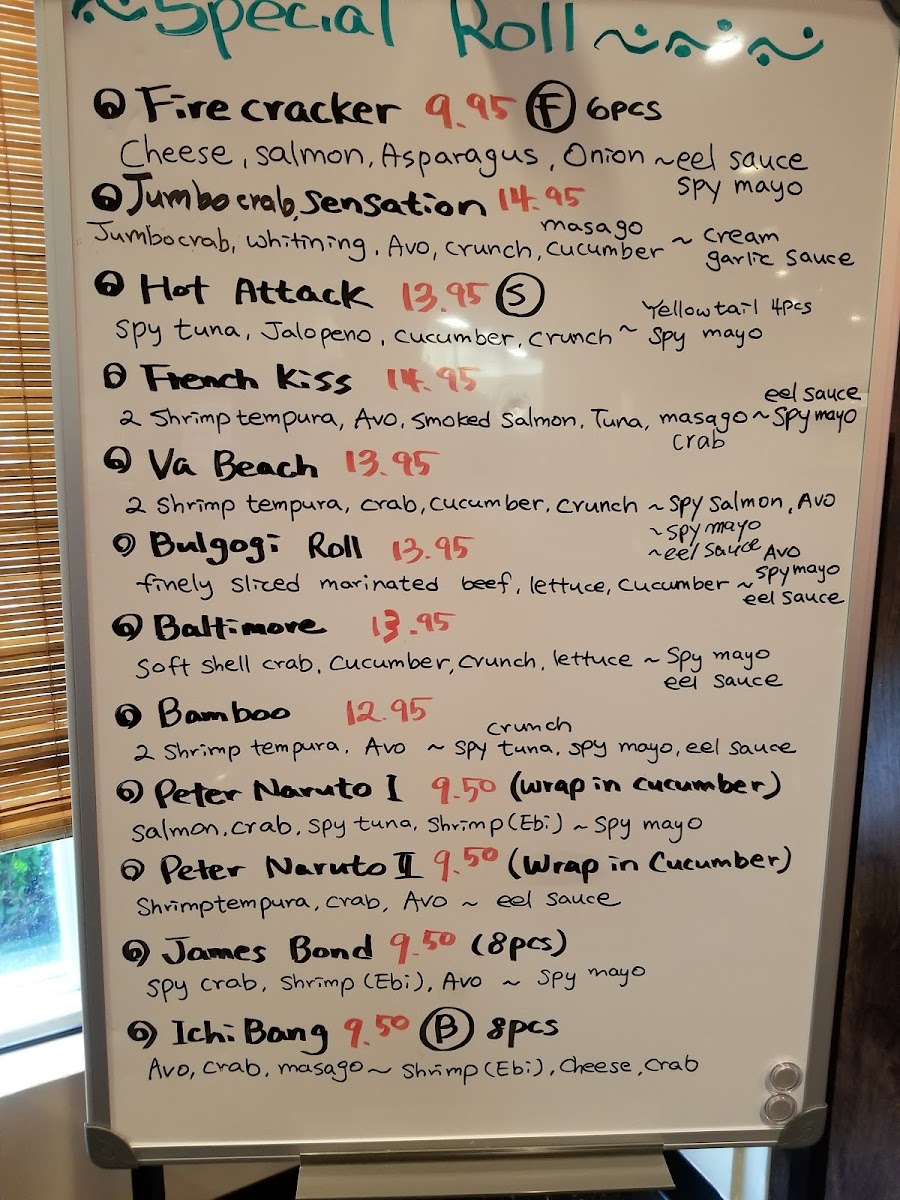 Special Roll
Firecracker 9.95 (F) 6pcs
Cheese, salmon, Asparagus, Onion ~eel sauce
spy mayo
Jumbo crab sensation 14.95
masago
Jumbo crab, whitining, Avo, crunch, cucumber ~ cream
garlic sauce
Hot Attack 13.95 (S)
Yellowtail 4pcs
Spy tuna, Jalopeno, cucumber, crunch ~ spy mayo
French Kiss 14.95
eel sauce
2 Shrimp tempura, Avo, smoked salmon, Tuna, masago ~ Spy mayo
crab
Va Beach 13.95
2 Shrimp tempura, crab, cucumber, crunch ~ Spy Salmon, Avo
~spy mayo
~eel sauce
Bulgogi Roll 13.95
Avo
finely sliced marinated beef, lettuce, cucumber ~ spy mayo
eel sauce
Baltimore 13.95
Soft shell crab, Cucumber, crunch, lettuce ~ Spy mayo
eel sauce
Bamboo 12.95
crunch
2 Shrimp tempura, Avo ~ spy tuna, spy mayo, eel sauce
Peter Naruto I 9.50 (wrap in cucumber)
Salmon, crab, spy tuna, Shrimp (Ebi) ~ Spy mayo
Peter Naruto II 9.50 (Wrap in Cucumber)
Shrimp tempura, crab, Avo ~ eel sauce
James Bond 9.50 (8pcs)
Spy crab, Shrimp (Ebi), Avo ~ Spy mayo
Ichi Bang 9.50 (B) 8pcs
Avo, crab, masago ~ Shrimp (Ebi), Cheese, Crab